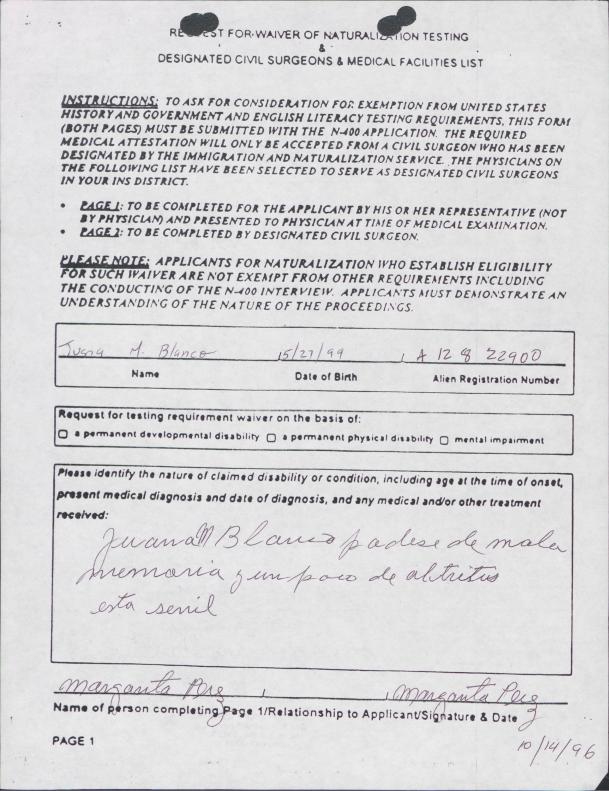 REQUEST FOR WAIVER OF NATURALIZATION TESTING
&
DESIGNATED CIVIL SURGEONS & MEDICAL FACILITIES LIST
INSTRUCTIONS: TO ASK FOR CONSIDERATION FOR EXEMPTION FROM UNITED STATES
HISTORY AND GOVERNMENT AND ENGLISH LITERACY TESTING REQUIREMENTS, THIS FORM
(BOTH PAGES) MUST BE SUBMITTED WITH THE N-400 APPLICATION. THE REQUIRED
MEDICAL ATTESTATION WILL ONLY BE ACCEPTED FROM A CIVIL SURGEON WHO HAS BEEN
DESIGNATED BY THE IMMIGRATION AND NATURALIZATION SERVICE. THE PHYSICIANS ON
THE FOLLOWING LIST HAVE BEEN SELECTED TO SERVE AS DESIGNATED CIVIL SURGEONS
IN YOUR INS DISTRICT.
• PAGE 1: TO BE COMPLETED FOR THE APPLICANT BY HIS OR HER REPRESENTATIVE (NOT
BY PHYSICIAN) AND PRESENTED TO PHYSICIAN AT TIME OF MEDICAL EXAMINATION.
• PAGE 2: TO BE COMPLETED BY DESIGNATED CIVIL SURGEON.
PLEASE NOTE: APPLICANTS FOR NATURALIZATION WHO ESTABLISH ELIGIBILITY
FOR SUCH WAIVER ARE NOT EXEMPT FROM OTHER REQUIREMENTS INCLUDING
THE CONDUCTING OF THE N-400 INTERVIEW. APPLICANTS MUST DEMONSTRATE AN
UNDERSTANDING OF THE NATURE OF THE PROCEEDINGS.
Juana M. Blanco 15/27/99 A 12 8 22900
Name Date of Birth Alien Registration Number
Request for testing requirement waiver on the basis of:
a permanent developmental disability a permanent physical disability mental impairment
Please identify the nature of claimed disability or condition, including age at the time of onset,
present medical diagnosis and date of diagnosis, and any medical and/or other treatment
received:
Juana M Blanco padese de mala
memoria y un poco de altritus
esta senil
Margarita Perez Margarita Perez
Name of person completing Page 1/Relationship to Applicant/Signature & Date
PAGE 1
10/14/96